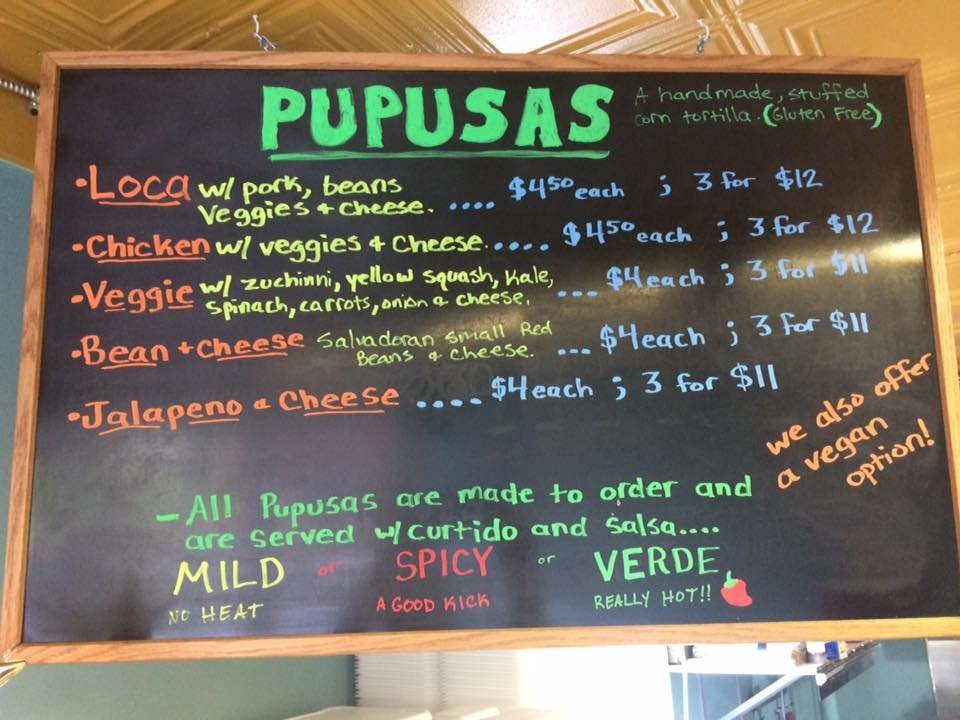 PUPUSAS
A handmade, stuffed
corn tortilla. (Gluten Free)
• Loca w/ pork, beans
Veggies + cheese. .... $4.50 each ; 3 for $12
• Chicken w/ veggies & Cheese. .... $4.50 each ; 3 for $12
• Veggie w/ zuchinni, yellow squash, Kale,
spinach, carrots, onion & cheese. ... $4 each ; 3 for $11
• Bean + Cheese Salvadoran small Red
Beans & cheese. ... $4 each ; 3 for $11
• Jalapeno & Cheese .... $4 each ; 3 for $11
we also offer
a vegan
option!
- All Pupusas are made to order and
are served w/ curtido and salsa....
MILD or SPICY or VERDE
NO HEAT A GOOD KICK REALLY HOT!!